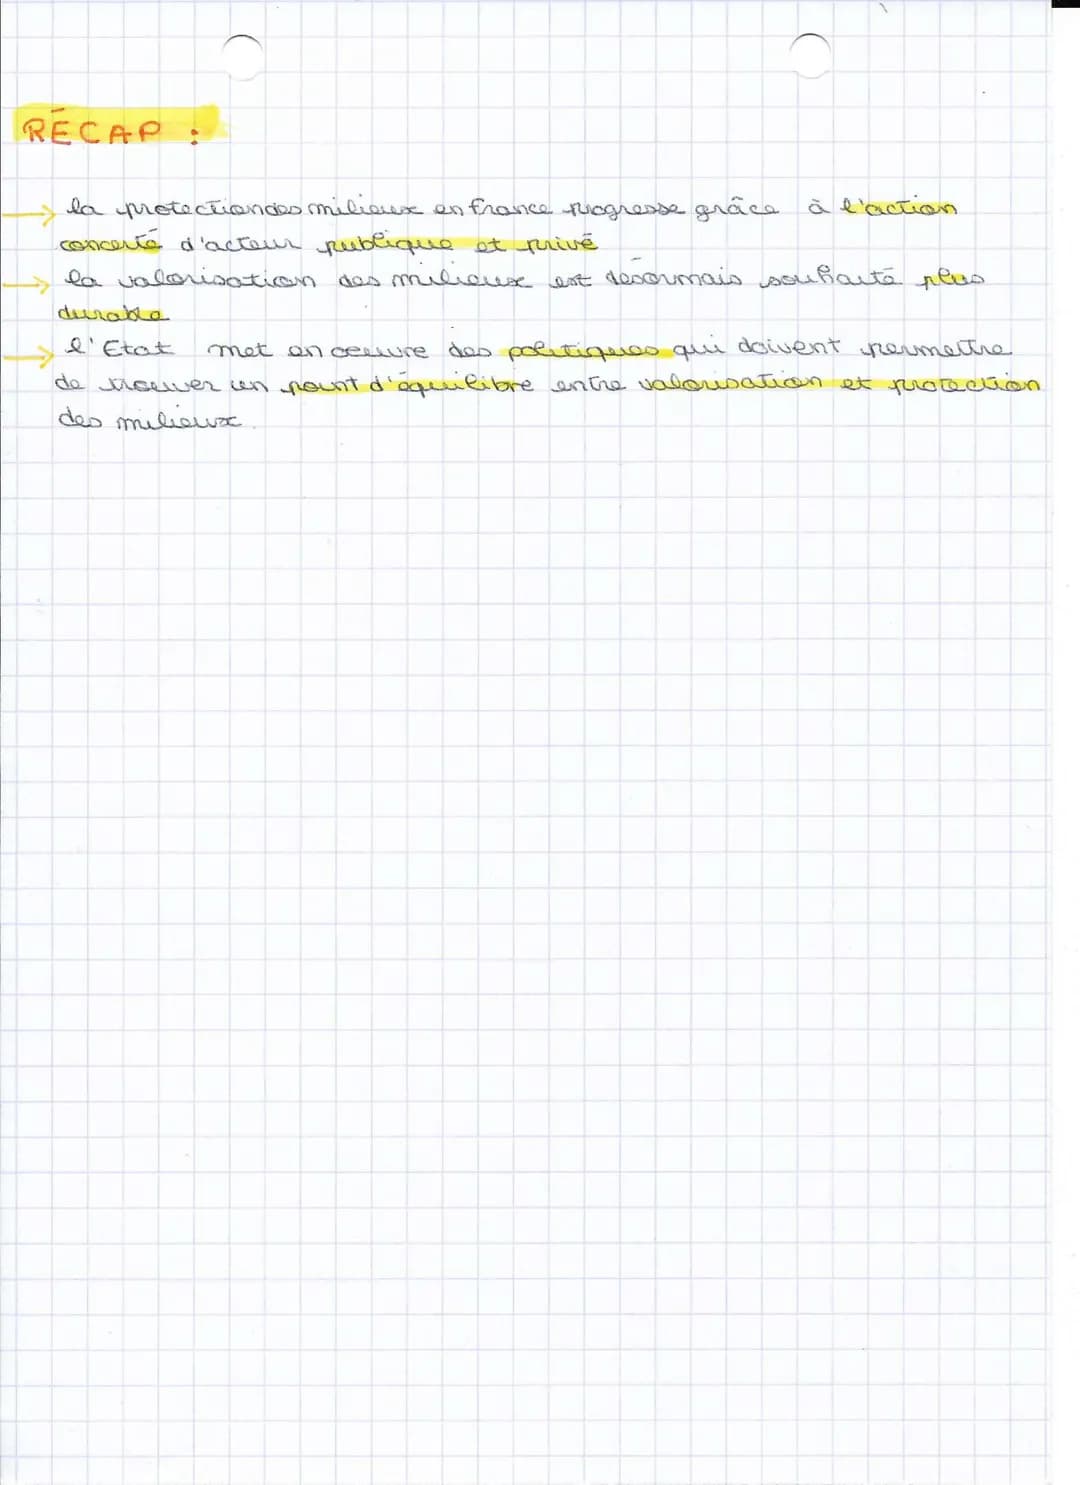 RÉCAP :
→ la protection des milieux en france progresse grâce à l'action
concerté d'acteur publique et privé
→ la valorisation des milieux est désormais souhaité plus
durable
→ l'Etat met en oeuvre des politiques qui doivent permettre
de trouver un point d'équilibre entre valorisation et protection
des milieux.